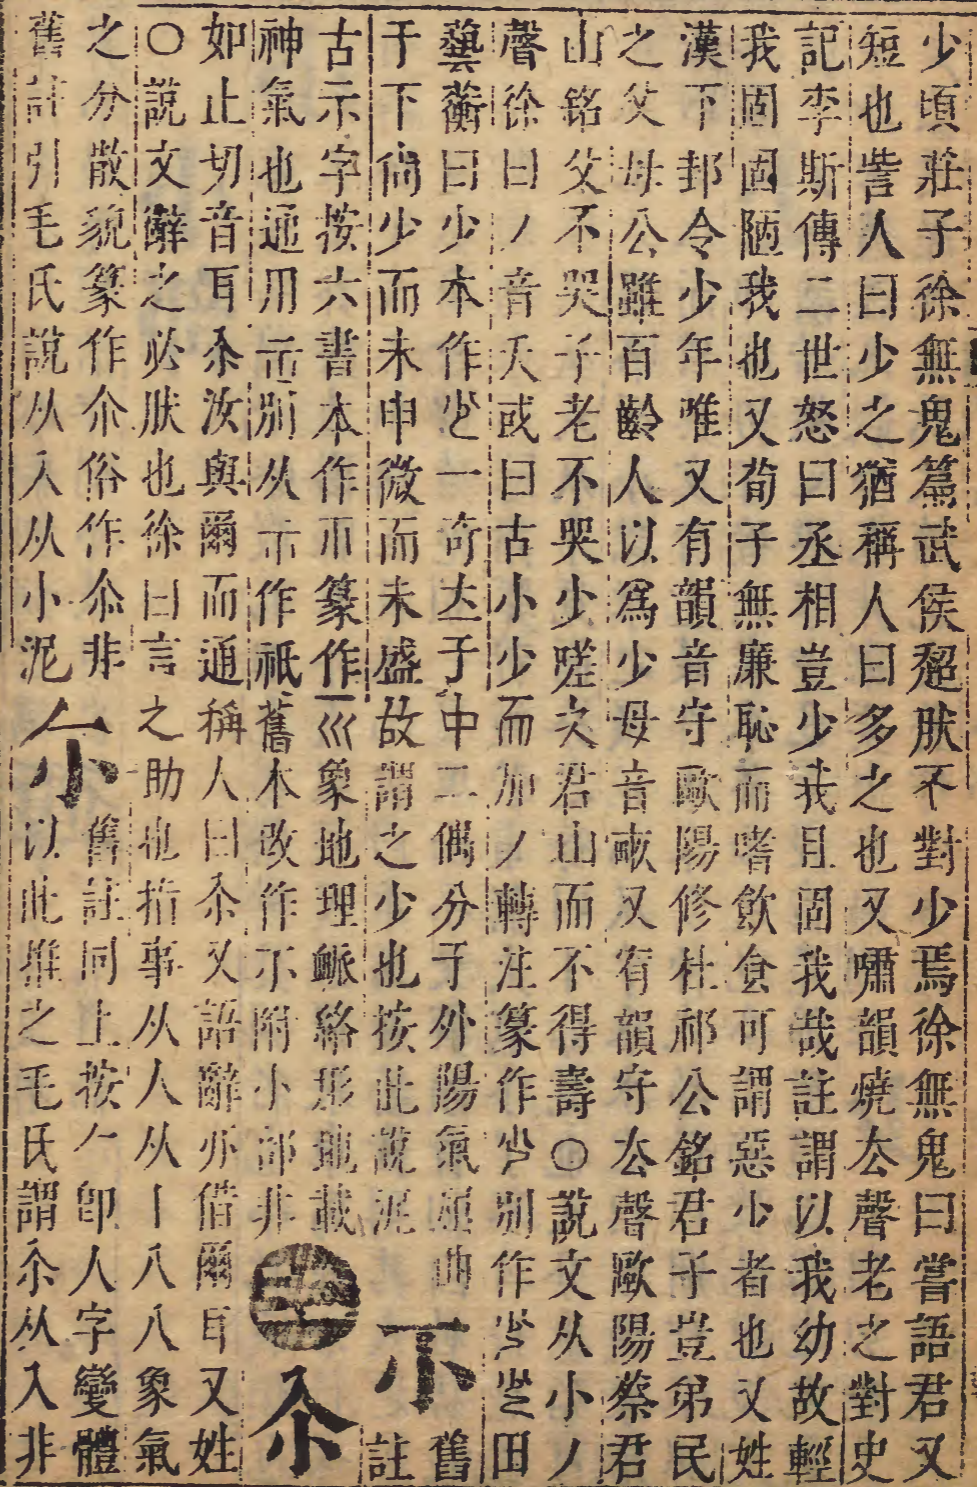 少頃莊子徐無鬼篇武侯超然不對少焉徐無鬼曰嘗語君又
短也訾人曰少之猶稱人曰多之也又嘯韻燒去聲老之對史
記李斯傳二世怒曰丞相豈少我且固我哉註謂以我幼故輕
我固固陋我也又荀子無廉恥而嗜飲食可謂惡少者也又姓
漢下邽令少年唯又有韻音守歐陽修杜祁公銘君子豈弟民
之父母公雖百齡人以爲少母音畝又宥韻守去聲歐陽蔡君
山銘父不哭子老不哭少嗟夊君山而不得壽○說文从小丿
聲徐曰丿音夭或曰古小少而加丿轉注篆作別作田
藝蘅曰少本作一奇太于中二偶分于外陽氣屈曲
于下尙少而未申微而未盛故謂之少也按此說泥
𡭕舊註
古示字按六書本作篆作象地理䘑絡形地載
神氣也通用示別从示作祇舊本改作附小部非
尒如止切音耳尒汝與爾而通稱人曰尒又語辭亦借爾耳又姓
○說文辭之必肰也徐曰言之助也指事从人从丨八八象氣
之分散貌篆作尒俗作尒非
𡭗舊註同上按𠂉卽人字變體
舊註引毛氏說从入从小泥以此推之毛氏謂尒从入非